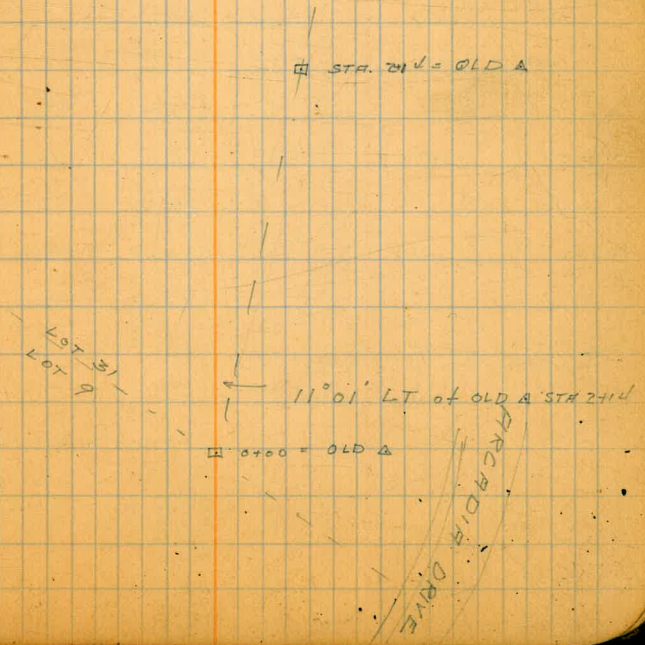 STA. 2+1↓ = OLD △
LOT 31
LOT 9
11°01' LT of OLD △ STA 2+1↓
0+00 = OLD △
ARCADIA DRIVE